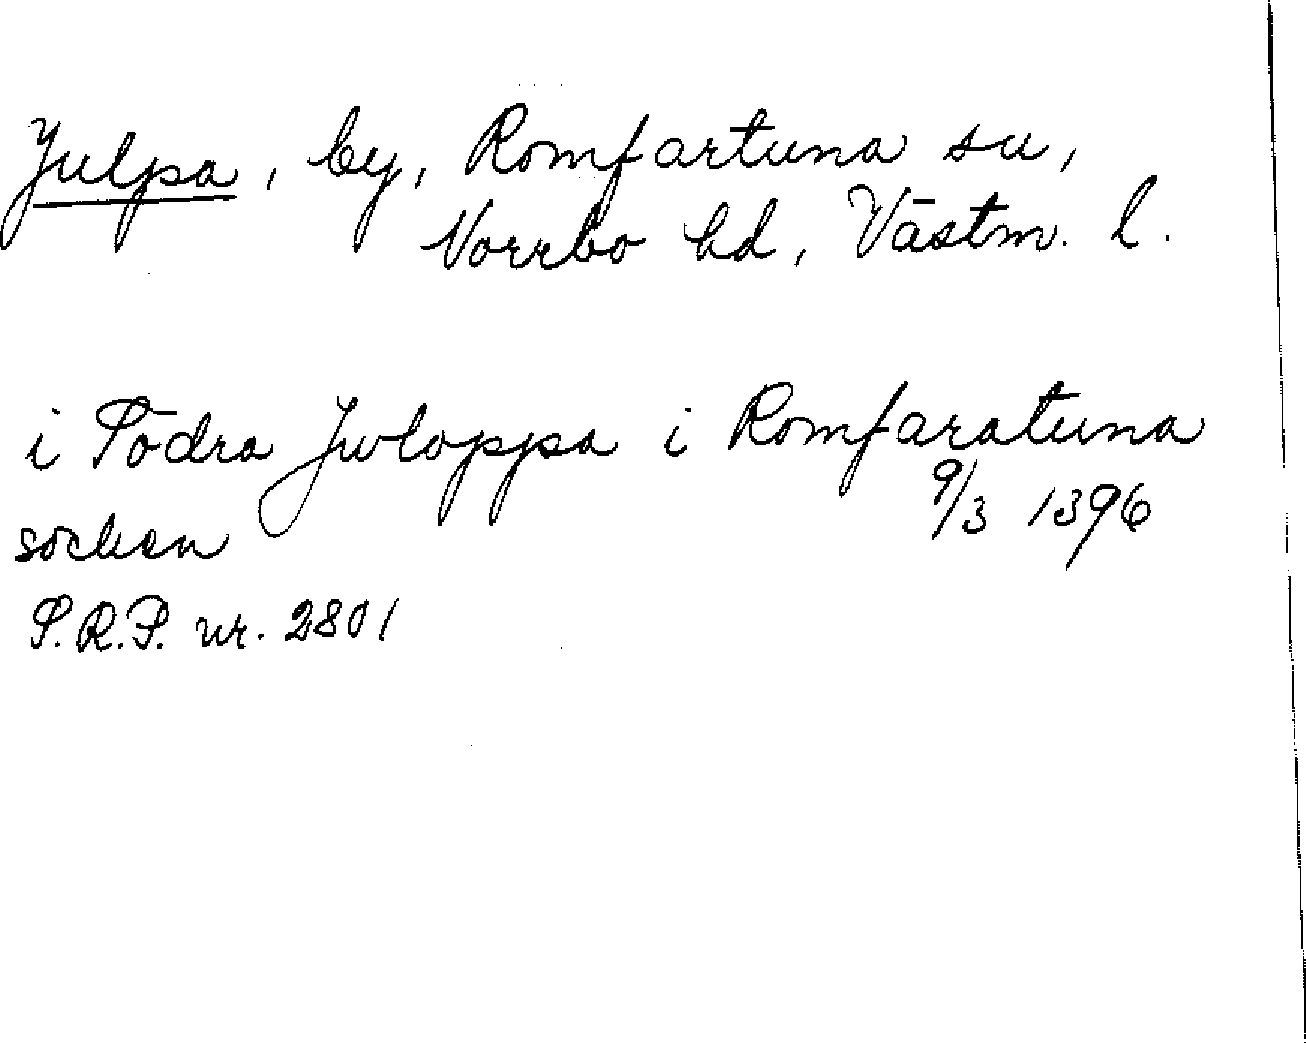 Julpa, by, Romfartuna sn,
Norrbo hd, Västm. l.
i Södra Juloppa i Romfaratuna
9/3 1396
socken
S.R.P. nr. 2801